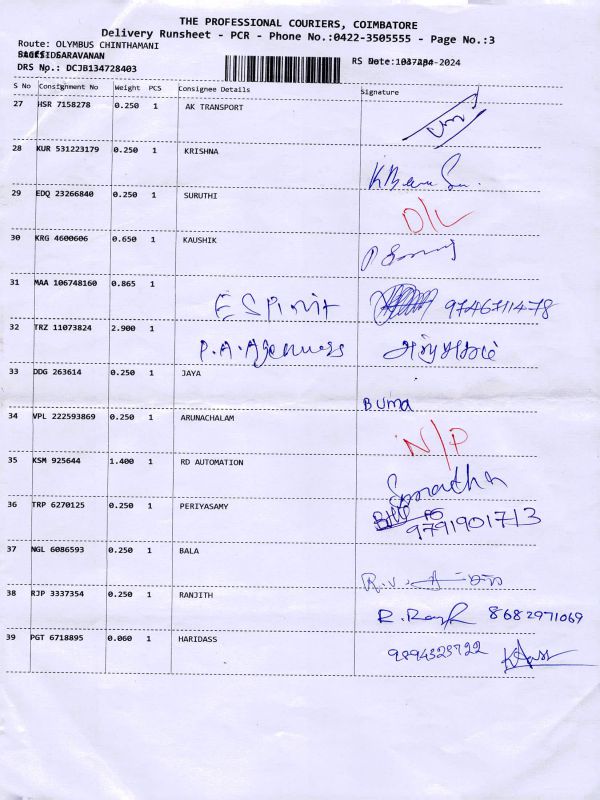 THE PROFESSIONAL COURIERS, COIMBATORE
Delivery Runsheet - PCR - Phone No.:0422-3505555 - Page No.:3
Route: OLYMBUS CHINTHAMANI
SARAVANAN
DRS Np.: DCJB134728403
S No Consignment No Weight PCS Consignee Details Signature
27 HSR 7158278 0.250 1 AK TRANSPORT
28 KUR 531223179 0.250 1 KRISHNA
29 EDQ 23266840 0.250 1 SURUTHI D/L
30 KRG 4600606 0.650 1 KAUSHIK
31 MAA 106748160 0.865 1 9746711478
32 TRZ 11073824 2.900 1
33 DDG 263614 0.250 1 JAYA B uma
34 VPL 222593869 0.250 1 ARUNACHALAM N/P
35 KSM 925644 1.400 1 RD AUTOMATION
36 TRP 6270125 0.250 1 PERIYASAMY 9791901713
37 NGL 6086593 0.250 1 BALA
38 RJP 3337354 0.250 1 RANJITH 8682971069
39 PGT 6718895 0.060 1 HARIDASS